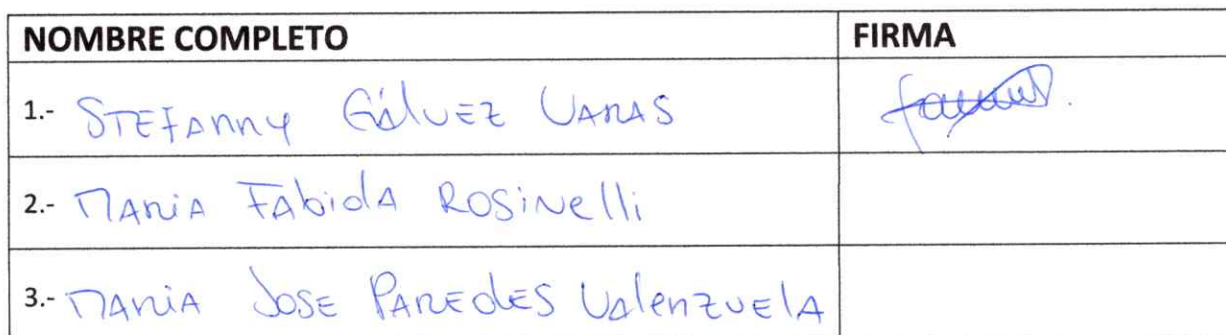 NOMBRE COMPLETO FIRMA
1.- STEFANNY GÁLVEZ VARAS
2.- MARIA FABIOLA ROSINELLI
3.- MARIA JOSE PAREDES VALENZUELA